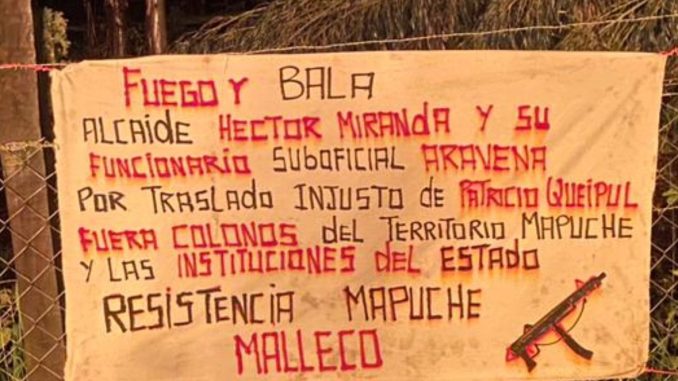 FUEGO Y BALA
ALCAIDE HECTOR MIRANDA Y SU
FUNCIONARIO SUBOFICIAL ARAVENA
POR TRASLADO INJUSTO de PATRICIO QUEIPUL
FUERA COLONOS del TERRITORIO MAPUCHE
Y LAS INSTITUCIONES DEL ESTADO
RESISTENCIA MAPUCHE
MALLECO